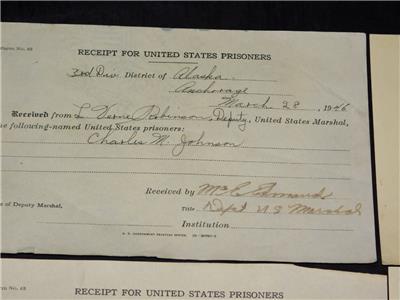 Form No. 49
RECEIPT FOR UNITED STATES PRISONERS
3rd Div. District of Alaska
Anchorage
March 28, 1946
Received from L. Verne Robinson, Deputy, United States Marshal,
the following-named United States prisoners:
Charles M. Johnson
Received by
e of Deputy Marshal.
Title Dept U.S Marshal
Institution
U. S. GOVERNMENT PRINTING OFFICE
RECEIPT FOR UNITED STATES PRISONERS